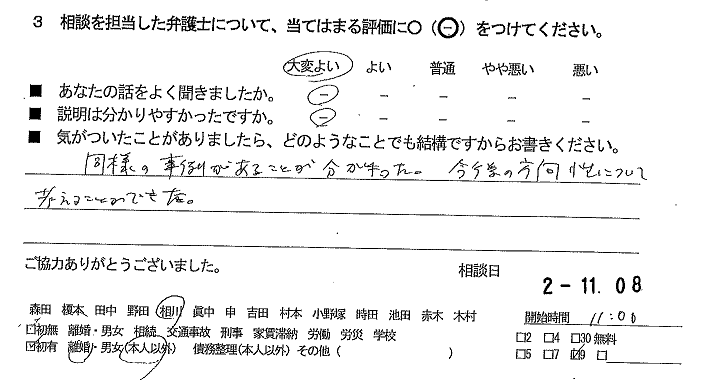 3 相談を担当した弁護士について、当てはまる評価に○（⊖）をつけてください。
大変よい よい 普通 やや悪い 悪い
■ あなたの話をよく聞きましたか。 － － － － －
■ 説明は分かりやすかったですか。 － － － － －
■ 気がついたことがありましたら、どのようなことでも結構ですからお書きください。
同様の事例があることが分かった。 今後の方向性について
考えることができた。
ご協力ありがとうございました。
相談日 2-11.08
森田 榎本 田中 野田 相川 眞中 申 吉田 村本 小野塚 時田 池田 赤木 木村
開始時間 11:00
☑初無 離婚・男女 相続 交通事故 刑事 家賃滞納 労働 労災 学校
□2 □4 □30 無料
☑初有 離婚・男女(本人以外) 債務整理(本人以外) その他 ( )
□5 □7 ☑9 □